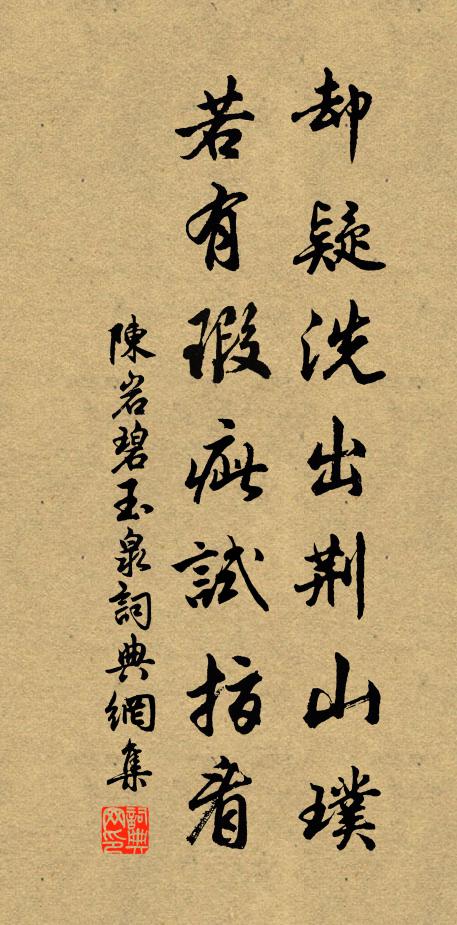 却疑洗出荆山璞
若有瑕疵試指看
陳岩碧玉泉詞典網集
詞典网印